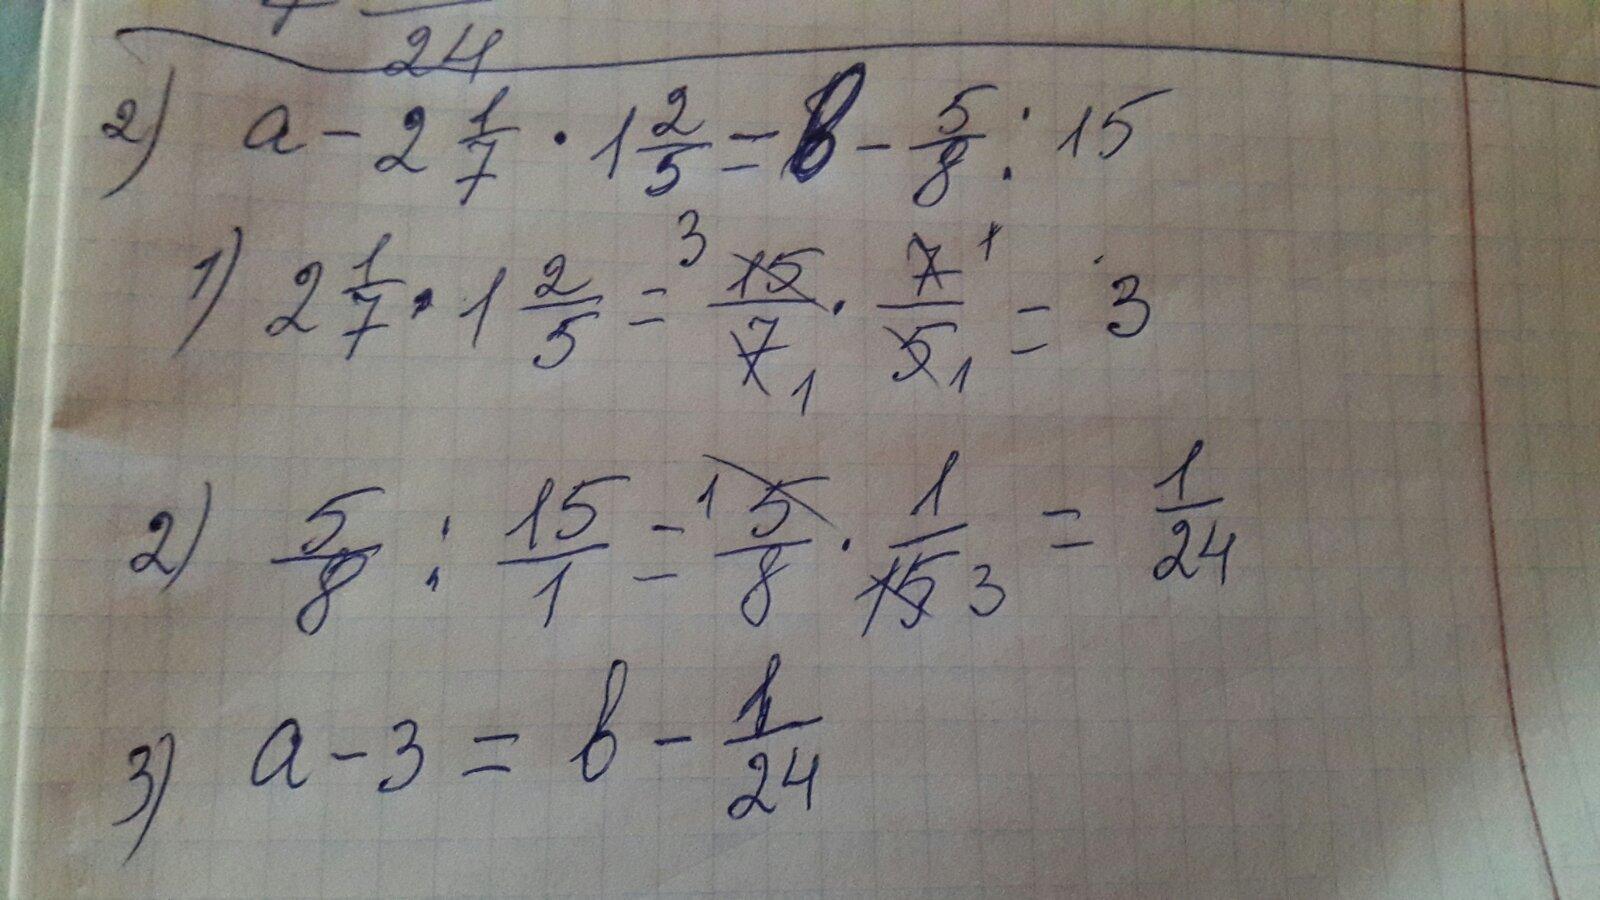 24
2) a - 2 1/7 · 1 2/5 = b - 5/8 : 15
1) 2 1/7 · 1 2/5 = 3 15/7 1 · 7 1/5 1 = 3
2) 5/8 : 15/1 = 1 5/8 · 1/15 3 = 1/24
3) a - 3 = b - 1/24